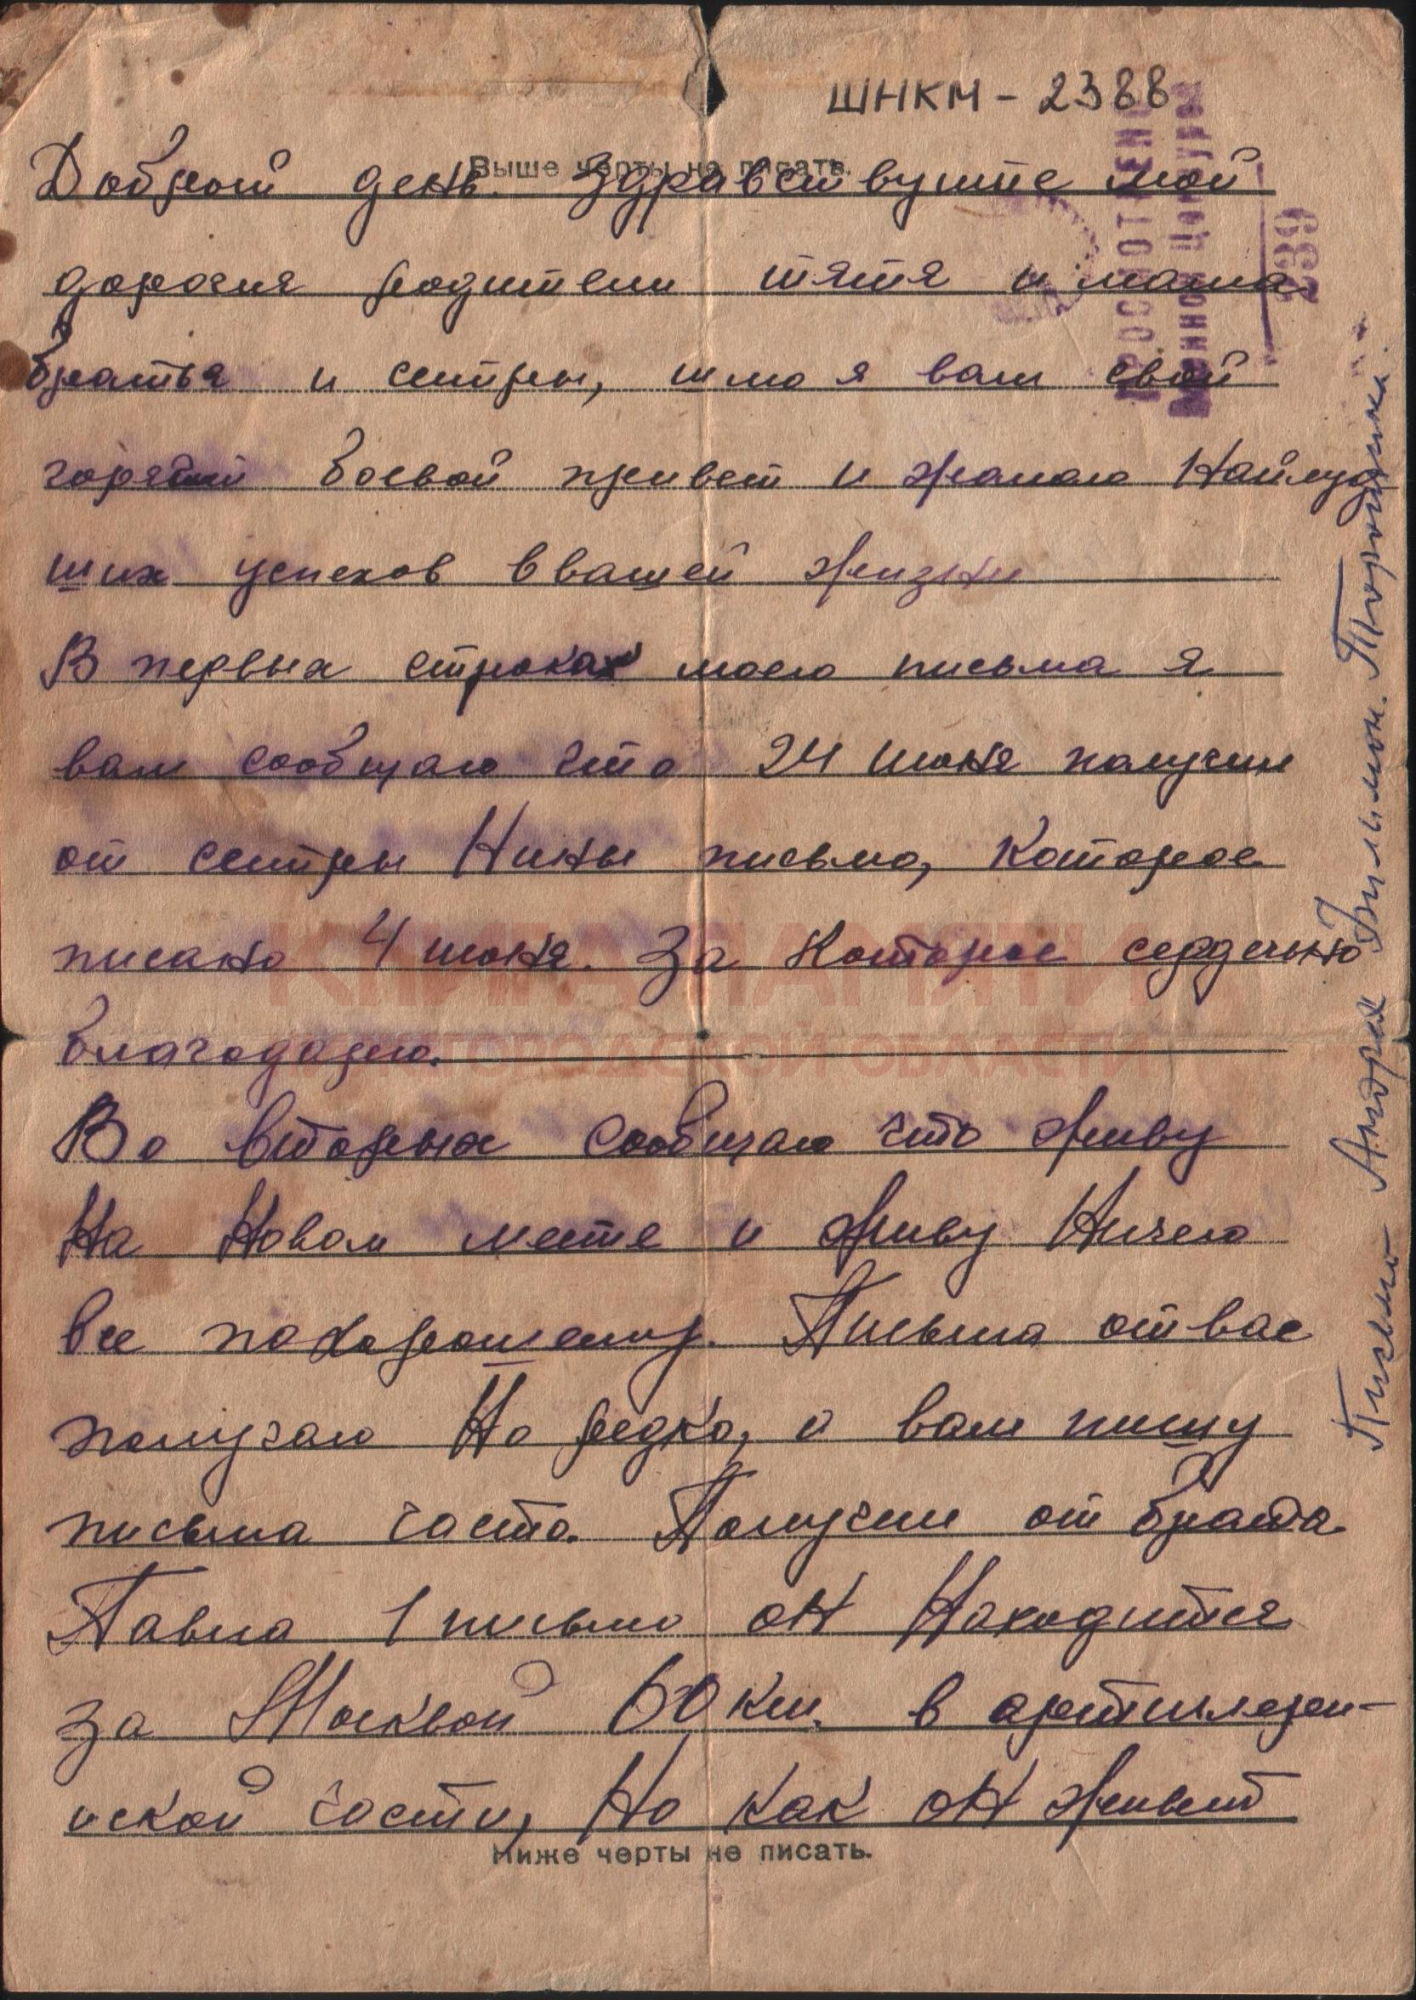 ШНКМ - 2388
Выше черты не писать.
Добрый день. Здравствуйте мои
дорогия родители тятя и мама
братья и сестры, шлю я вам свой
горячий боевой привет и желаю Найлуч
ших успехов в вашей жизни
В первых строках моего письма я
вам сообщаю что 24 июня получил
от сестры Нины письмо, Которое
писано 4 июня. За Которое сердечно
благодарю.
Во вторых сообщаю что живу
На Новом месте и живу Ничего
все похорошему. Письма от вас
получаю Но редко, а вам пишу
письма часто. Получил от брата
Павла 1 письмо он Находится
за Москвой 60 км. в артилери-
иской части, Но как он живет
Ниже черты не писать.
ПРОСМОТРЕНО
Военной Цензурой
239
Письмо Андрея Филимон.
КНИГА ПАМЯТИ
НИЖЕГОРОДСКОЙ ОБЛАСТИ